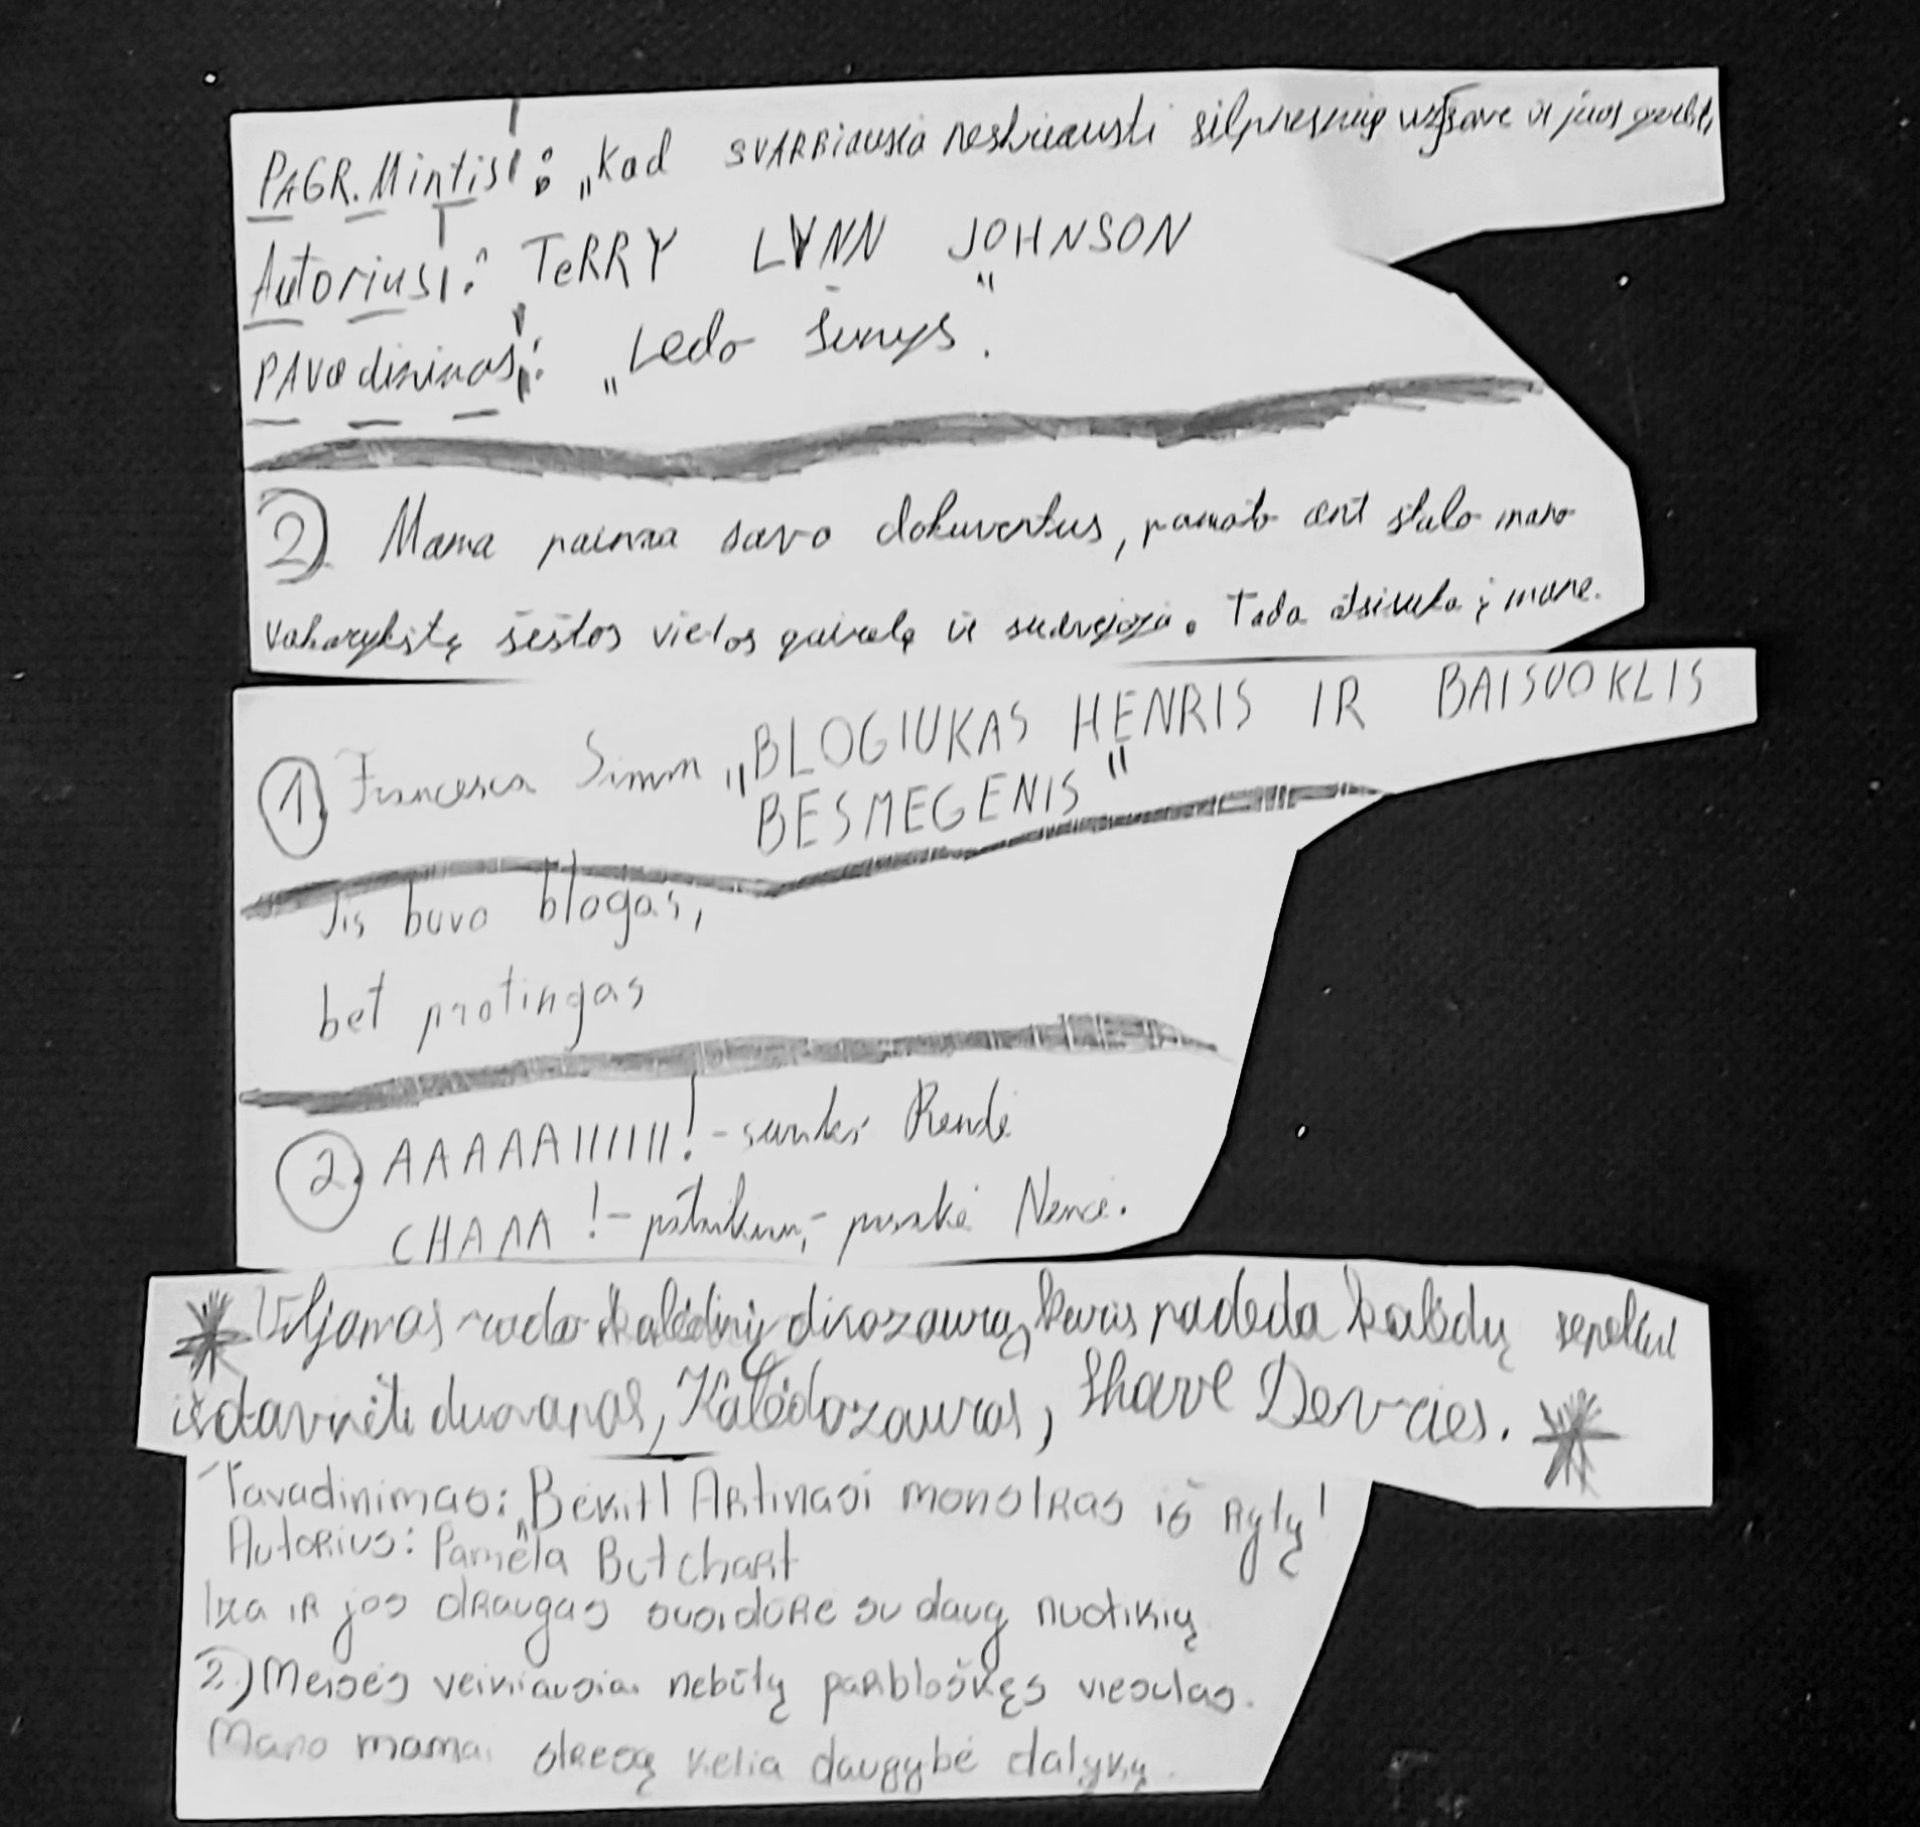 PAGR. Mintis: „Kad SVARBiausia neskriausti silpnesnių už save ir juos gerbti,
Autorius: TeRRY LYNN JOHNSON
PAVadinimas: „Ledo šunys".
2) Mama paima savo dokumentus, pamato ant stalo mano
vakarykštę šeštos vietos gairelę ir sudvejoja. Tada atsisuka į mane.
1. Francesca Simon „BLOGIUKAS HENRIS IR BAISUOKLIS
BESMEGENIS"
Jis buvo blogas,
bet protingas
2. AAAAAIIIIIII! - sunkė Rendė
CHAAA! - puškė Nencė.
Viljamas rado kalėdinį dinozaurą, kuris padeda kalėdų seneliui
išdavinėti dovanas, Kalėdozauras, Devries.
Pavadinimas: „Bėkit! Artinasi monstras iš Rytų!
Autorius: Pamela Butchart
Iza iR jos dRaugas susidūRė su daug nuotikių
2.) Meisės veikiausiai nebūtų paRbloškęs viesulas.
Mano mamai stResą kelia daugybė dalykų.